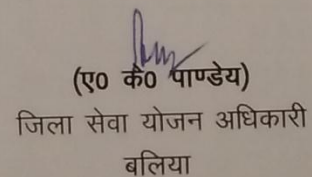 (ए0 के0 पाण्डेय)
जिला सेवा योजन अधिकारी
बलिया